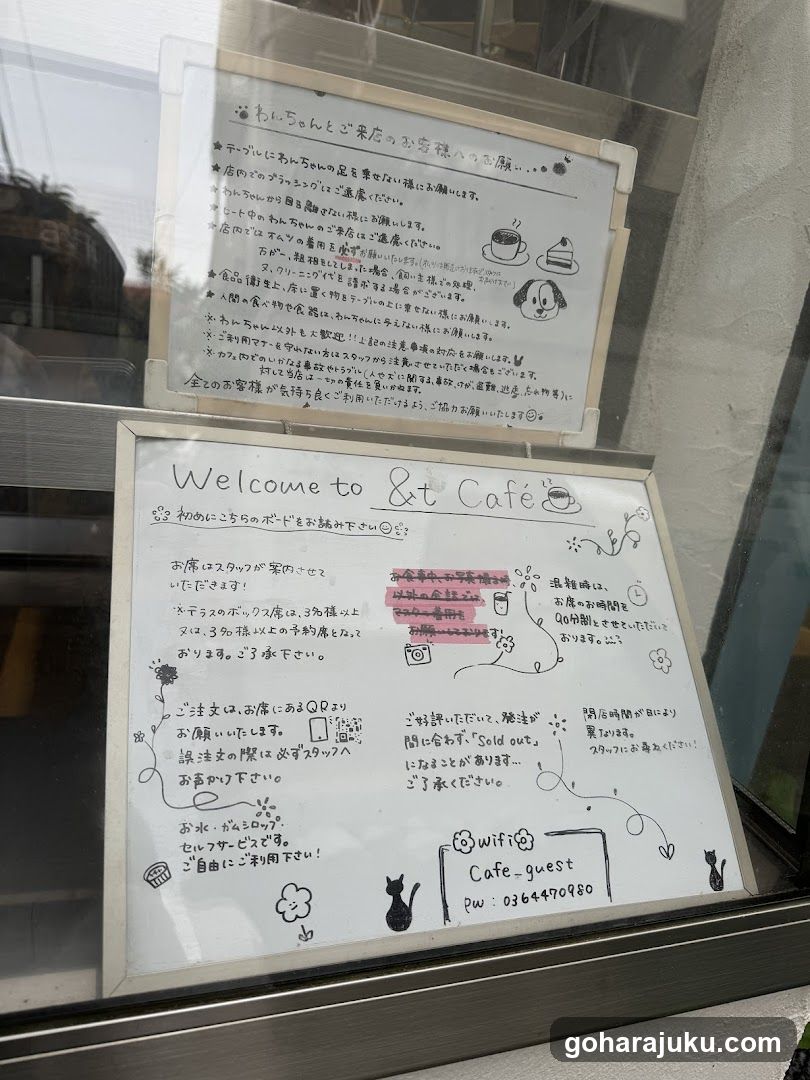 わんちゃんとご来店のお客様へのお願い...
★テーブルにわんちゃんの足を乗せない様にお願いします。
★店内でのブラッシングはご遠慮ください。
★わんちゃんから目を離さない様にお願いします。
★ヒート中のわんちゃんのご来店はご遠慮ください。
★店内ではオムツの着用を必ずお願いいたします。
万が一、粗相をしてしまった場合、飼い主様での処理、
又、クリーニング代を請求する場合がございます。
★食品衛生上、床に置く物をテーブルの上に乗せない様にお願いします。
★人間の食べ物や食器は、わんちゃんに与えない様にお願いします。
※わんちゃん以外も大歓迎!!上記の注意事項の対応をお願いします。
※ご利用マナーを守れない方はスタッフから注意させていただく場合もございます。
※カフェ内でのいかなる事故やトラブル(人や犬に関する、事故、けが、盗難、逃走、忘れ物等)に
対して当店は一切の責任を負いかねます。
全てのお客様が気持ち良くご利用いただけるよう、ご協力お願いいたします
Welcome to &t Café
初めにこちらのボードをお読み下さい
お席はスタッフが案内させて
いただきます!
※テラスのボックス席は、3名様以上
又は、3名様以上の予約席となって
おります。ご了承下さい。
お食事中、お写真撮る時
以外の会話では
マスク着用を
お願いしております!
混雑時は、
お席のお時間を
90分制とさせていただいて
おります。
ご注文は、お席にあるQRより
お願いいたします。
誤注文の際は必ずスタッフへ
お声かけ下さい。
ご好評いただいて、発注が
間に合わず、「Sold out」
になることがあります...
ご了承ください。
閉店時間が日により
異なります。
スタッフにお尋ねください!
お水・ガムシロップ・
セルフサービスです。
ご自由にご利用下さい!
wifi
Cafe_guest
pw : 0364470980
goharajuku.com